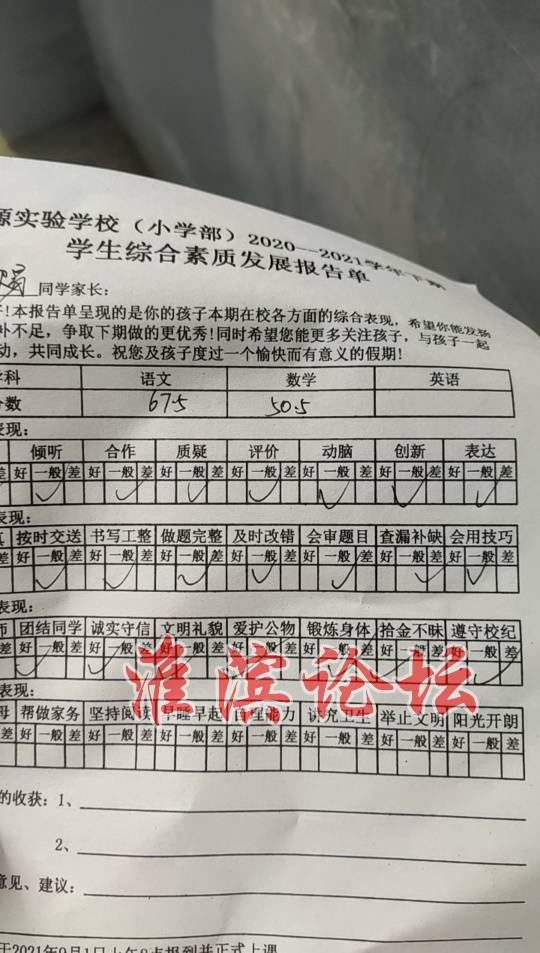 源实验学校（小学部）2020—2021学年下期
学生综合素质发展报告单
同学家长：
!本报告单呈现的是你的孩子本期在校各方面的综合表现，希望你能发扬
补不足，争取下期做的更优秀!同时希望您能更多关注孩子，与孩子一起
动，共同成长。祝您及孩子度过一个愉快而有意义的假期!
学科 语文 数学 英语
分数 67.5 50.5
表现：
倾听 合作 质疑 评价 动脑 创新 表达
差 好 一般 差 好 一般 差 好 一般 差 好 一般 差 好 一般 差 好 一般 差 好 一般 差
表现：
真 按时交送 书写工整 做题完整 及时改错 会审题目 查漏补缺 会用技巧
差 好 一般 差 好 一般 差 好 一般 差 好 一般 差 好 一般 差 好 一般 差 好 一般 差
表现：
师 团结同学 诚实守信 文明礼貌 爱护公物 锻炼身体 拾金不昧 遵守校纪
差 好 一般 差 好 一般 差 好 一般 差 好 一般 差 好 一般 差 好 一般 差 好 一般 差
淮滨论坛
表现：
母 帮做家务 坚持阅读 早睡早起 自理能力 讲究卫生 举止文明 阳光开朗
差 好 一般 差 好 一般 差 好 一般 差 好 一般 差 好 一般 差 好 一般 差 好 一般 差
的收获：1、
2、
意见、建议：
于2021年9月1日上午8点报到并正式上课